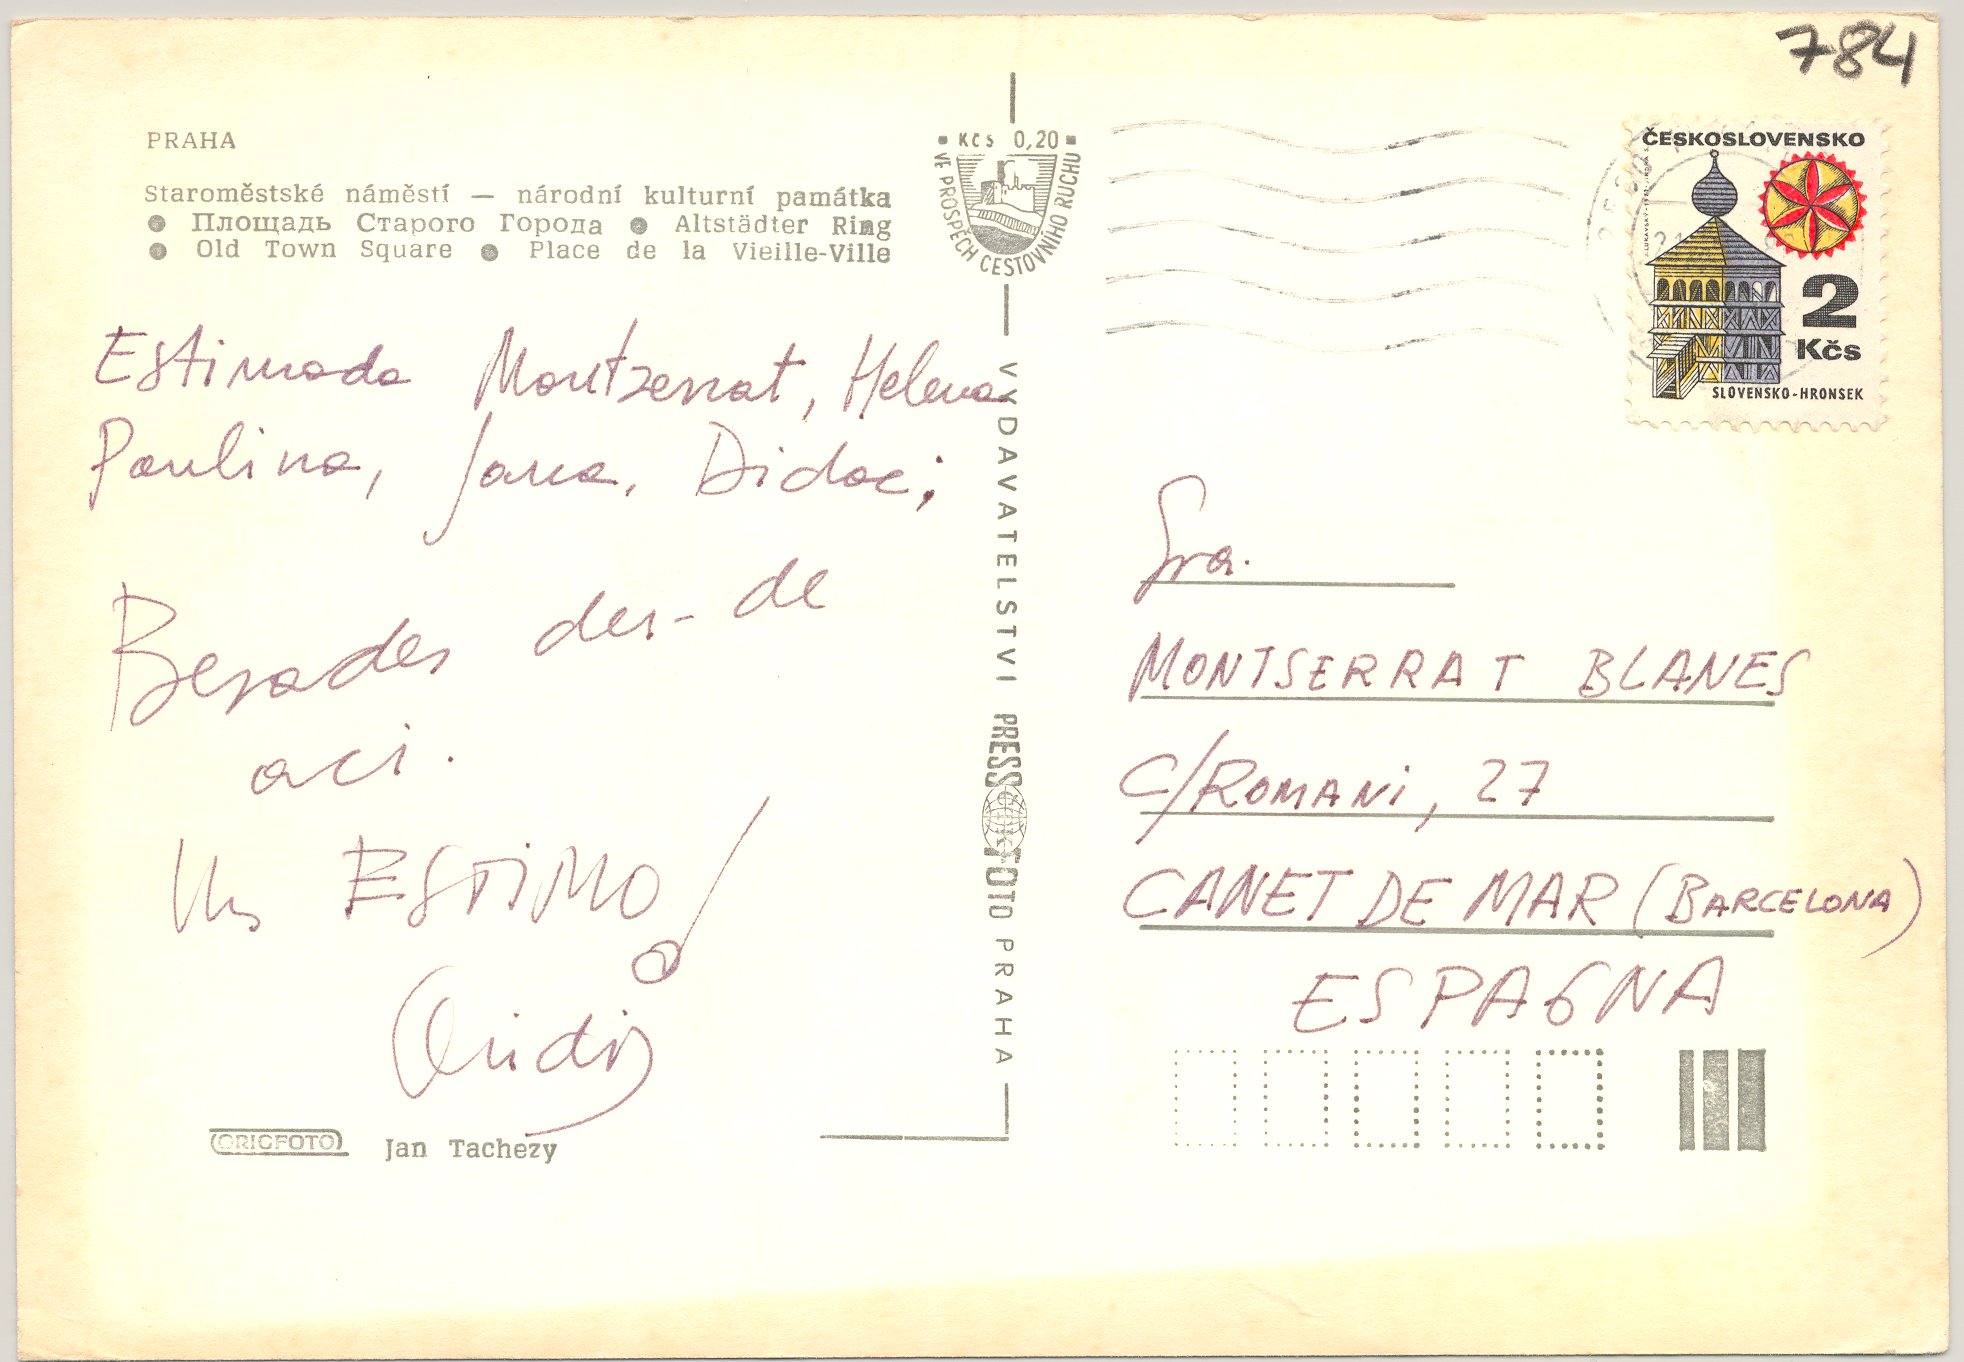 784
PRAHA
Staroměstské náměstí — národní kulturní památka
● Площадь Старого Города ● Altstädter Ring
● Old Town Square ● Place de la Vieille-Ville
Kčs 0,20
VE PROSPĚCH CESTOVNÍHO RUCHU
ČESKOSLOVENSKO
2
Kčs
SLOVENSKO-HRONSEK
Estimada Montzerrat, Helena
Paulina, Jana, Didac;
Besades des-de
aci.
Us ESTIMO!
Ovidi
ORIGFOTO Jan Tachezy
VYDAVATELSTVI PRESSFOTO PRAHA
Sra.
MONTSERRAT BLANES
C/ROMANi, 27
CANET DE MAR (BARCELONA)
ESPAGNA